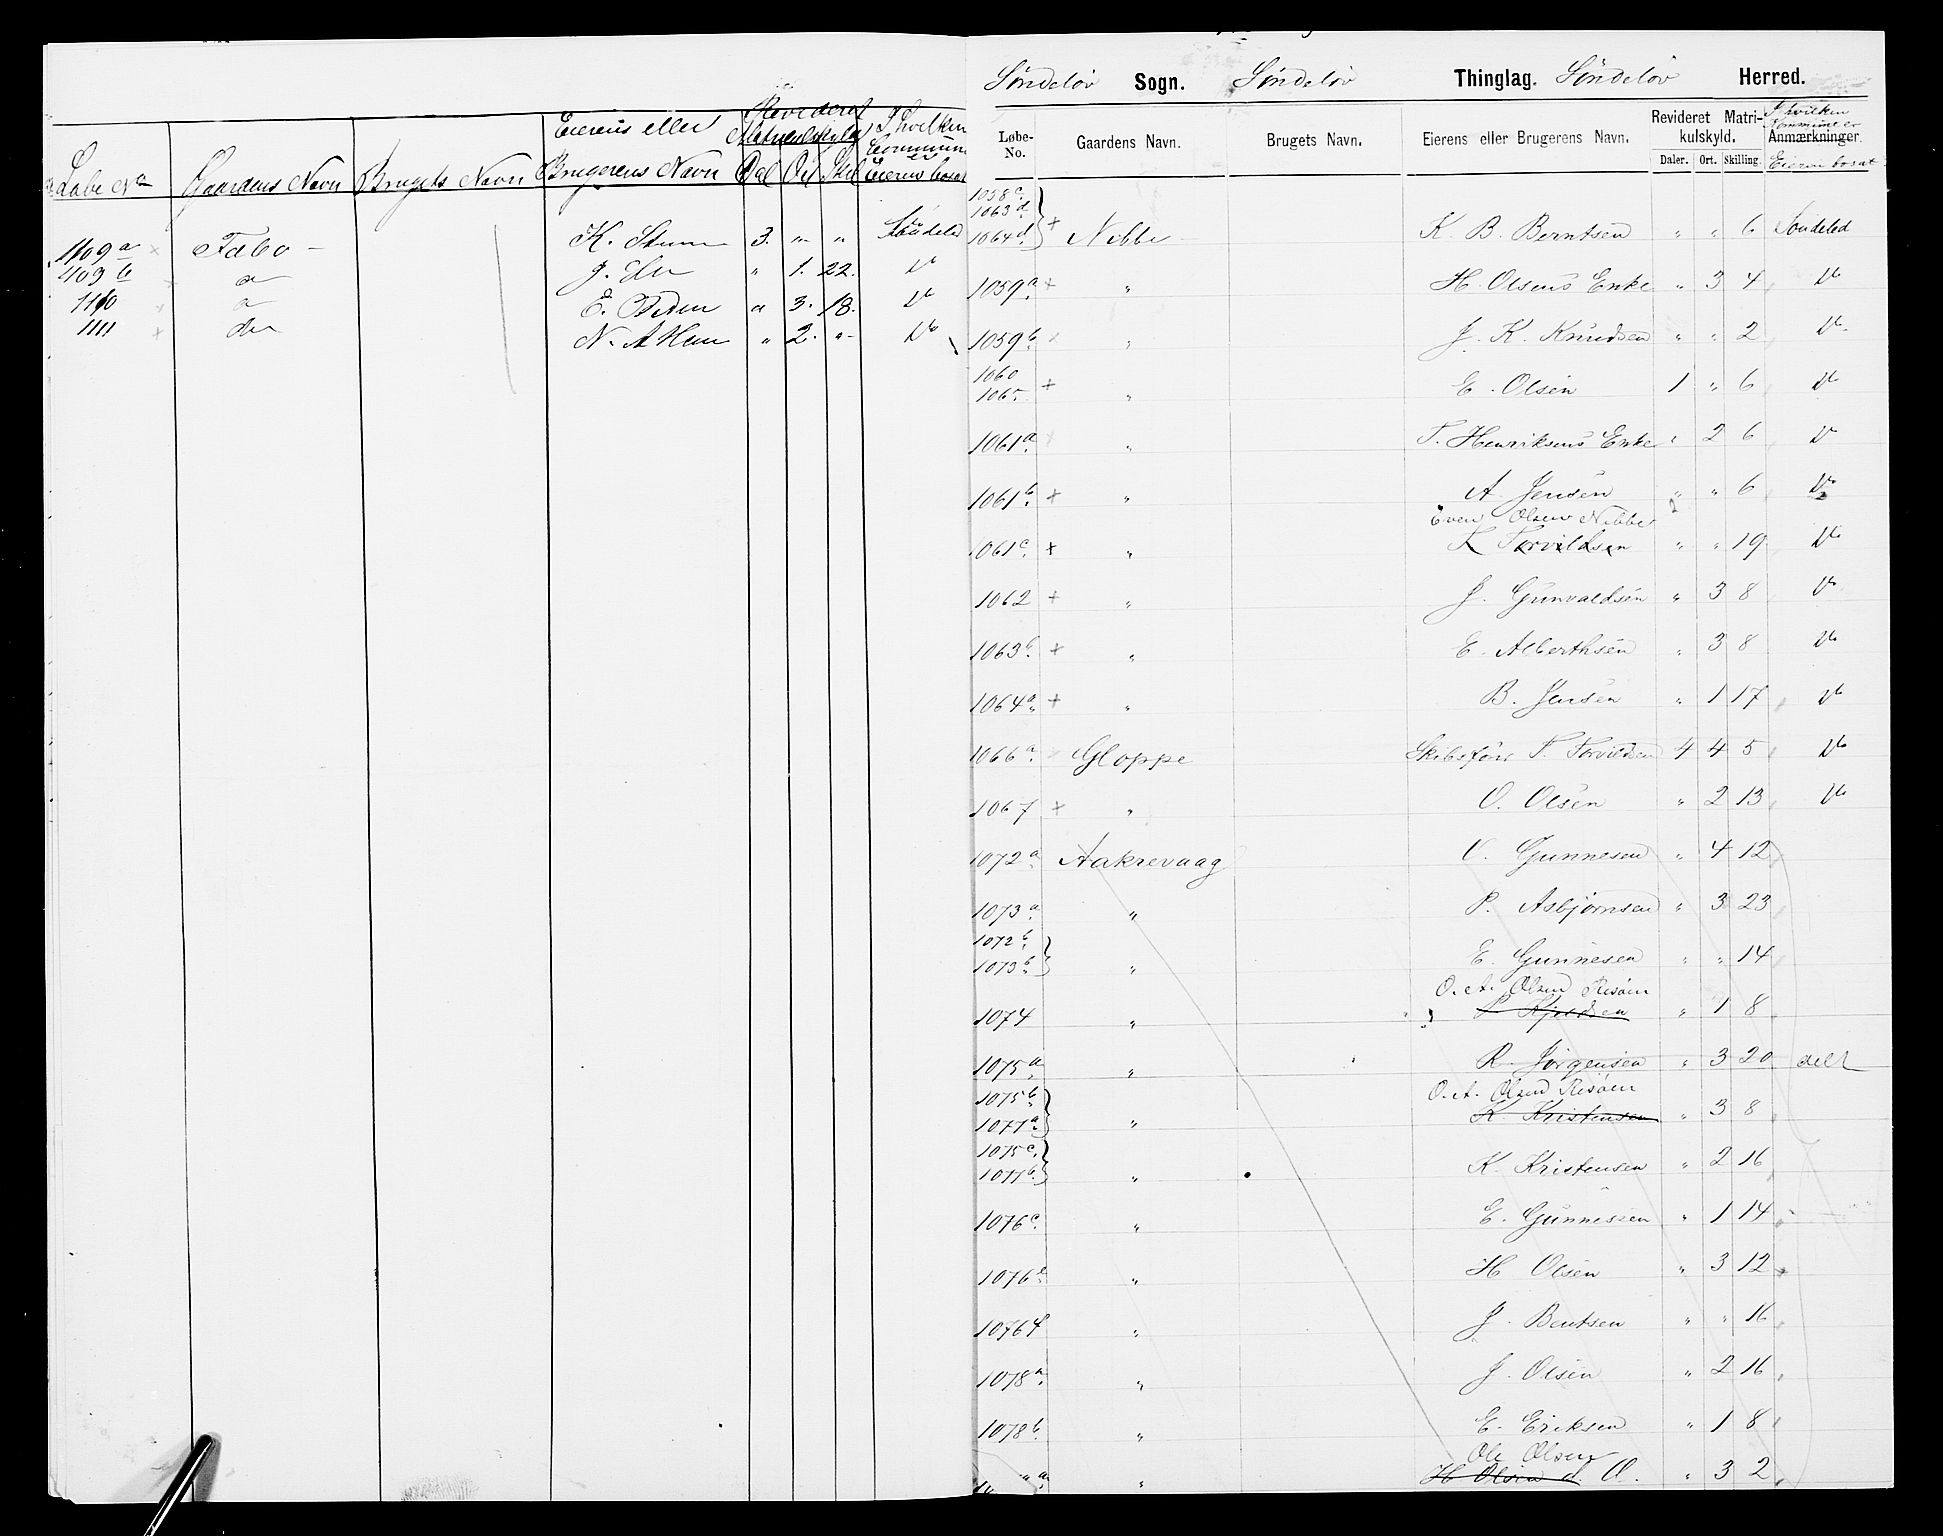 Revideret
Eierens eller Matrikulskyld I hvilken
Commune er
Løbe No Gaardens Navn Brugets Navn Brugerens Navn Dal Ort Skil Eieren bosat
1109 a × Fæbo — K. Steen 3. " " Søndeled
J. " 1. 22. Do
1110 E. Peden " 3. 18. Do
1111 × do N. " 2. " Do
Søndeløv Sogn. Søndeløv Thinglag. Søndeløv Herred.
Løbe-No. Gaardens Navn. Brugets Navn. Eierens eller Brugerens Navn. Revideret Matrikulskyld. Anmærkninger.
I hvilken Kommune er
Daler. Ort. Skilling. Eieren bosat
1058 c.
1063 d.
1064 d. + Nibbe K. B. Berntsen " " 6 Søndeled
1059 a + " H. Olsens Enke " 3 4 Do
1059 b. × " J. K. Knudsen " " 2 Do
1060
1065 + " E. Olsen 1 " 6 Do
1061 a. + " T. Henriksens Enke " 2 6 Do
1061 b. + " A. Jensen " " 6 Do
Even Olsen Nibbe
1061 c. + " K Torvildsen " " 19 Do
1062 + " J. Gunvaldsen " 3 8 Do
1063 b. + " E. Alberthsen " 3 8 Do
1064 a. + " B. Jensen " 1 17 Do
1066 a. × Gloppe Skibsfører T. Torvildsen 4 4 5 Do
1067 + " O. Olsen " 2 13 Do
1072 a. Aakrevaag O. Gunnesen " 4 12
1073 a. " P. Asbjørnsen " 3 23
1072 b.
1073 b. " E. Gunnesen " " 14
O. A. Olsen Risøen
1074 " Kjeldsen " 1 8
1075 a. " R. Jørgensen " 3 20 delt
O. A. Olsen Risøen
1075 b.
1077 a. " K. Kristensen " 3 8
1075 c.
1077 b. " K. Kristensen " 2 16
1076 c. " E. Gunnesen " 1 14
1076 e. " H Olsen " 3 12
1076 f " J. Bentsen " " 16
1078 a. " J. Olsen " 2 16
1078 b. " E. Eriksen " 1 8
Ole Olsen
" a. " H Olsen d. O. " 3 2